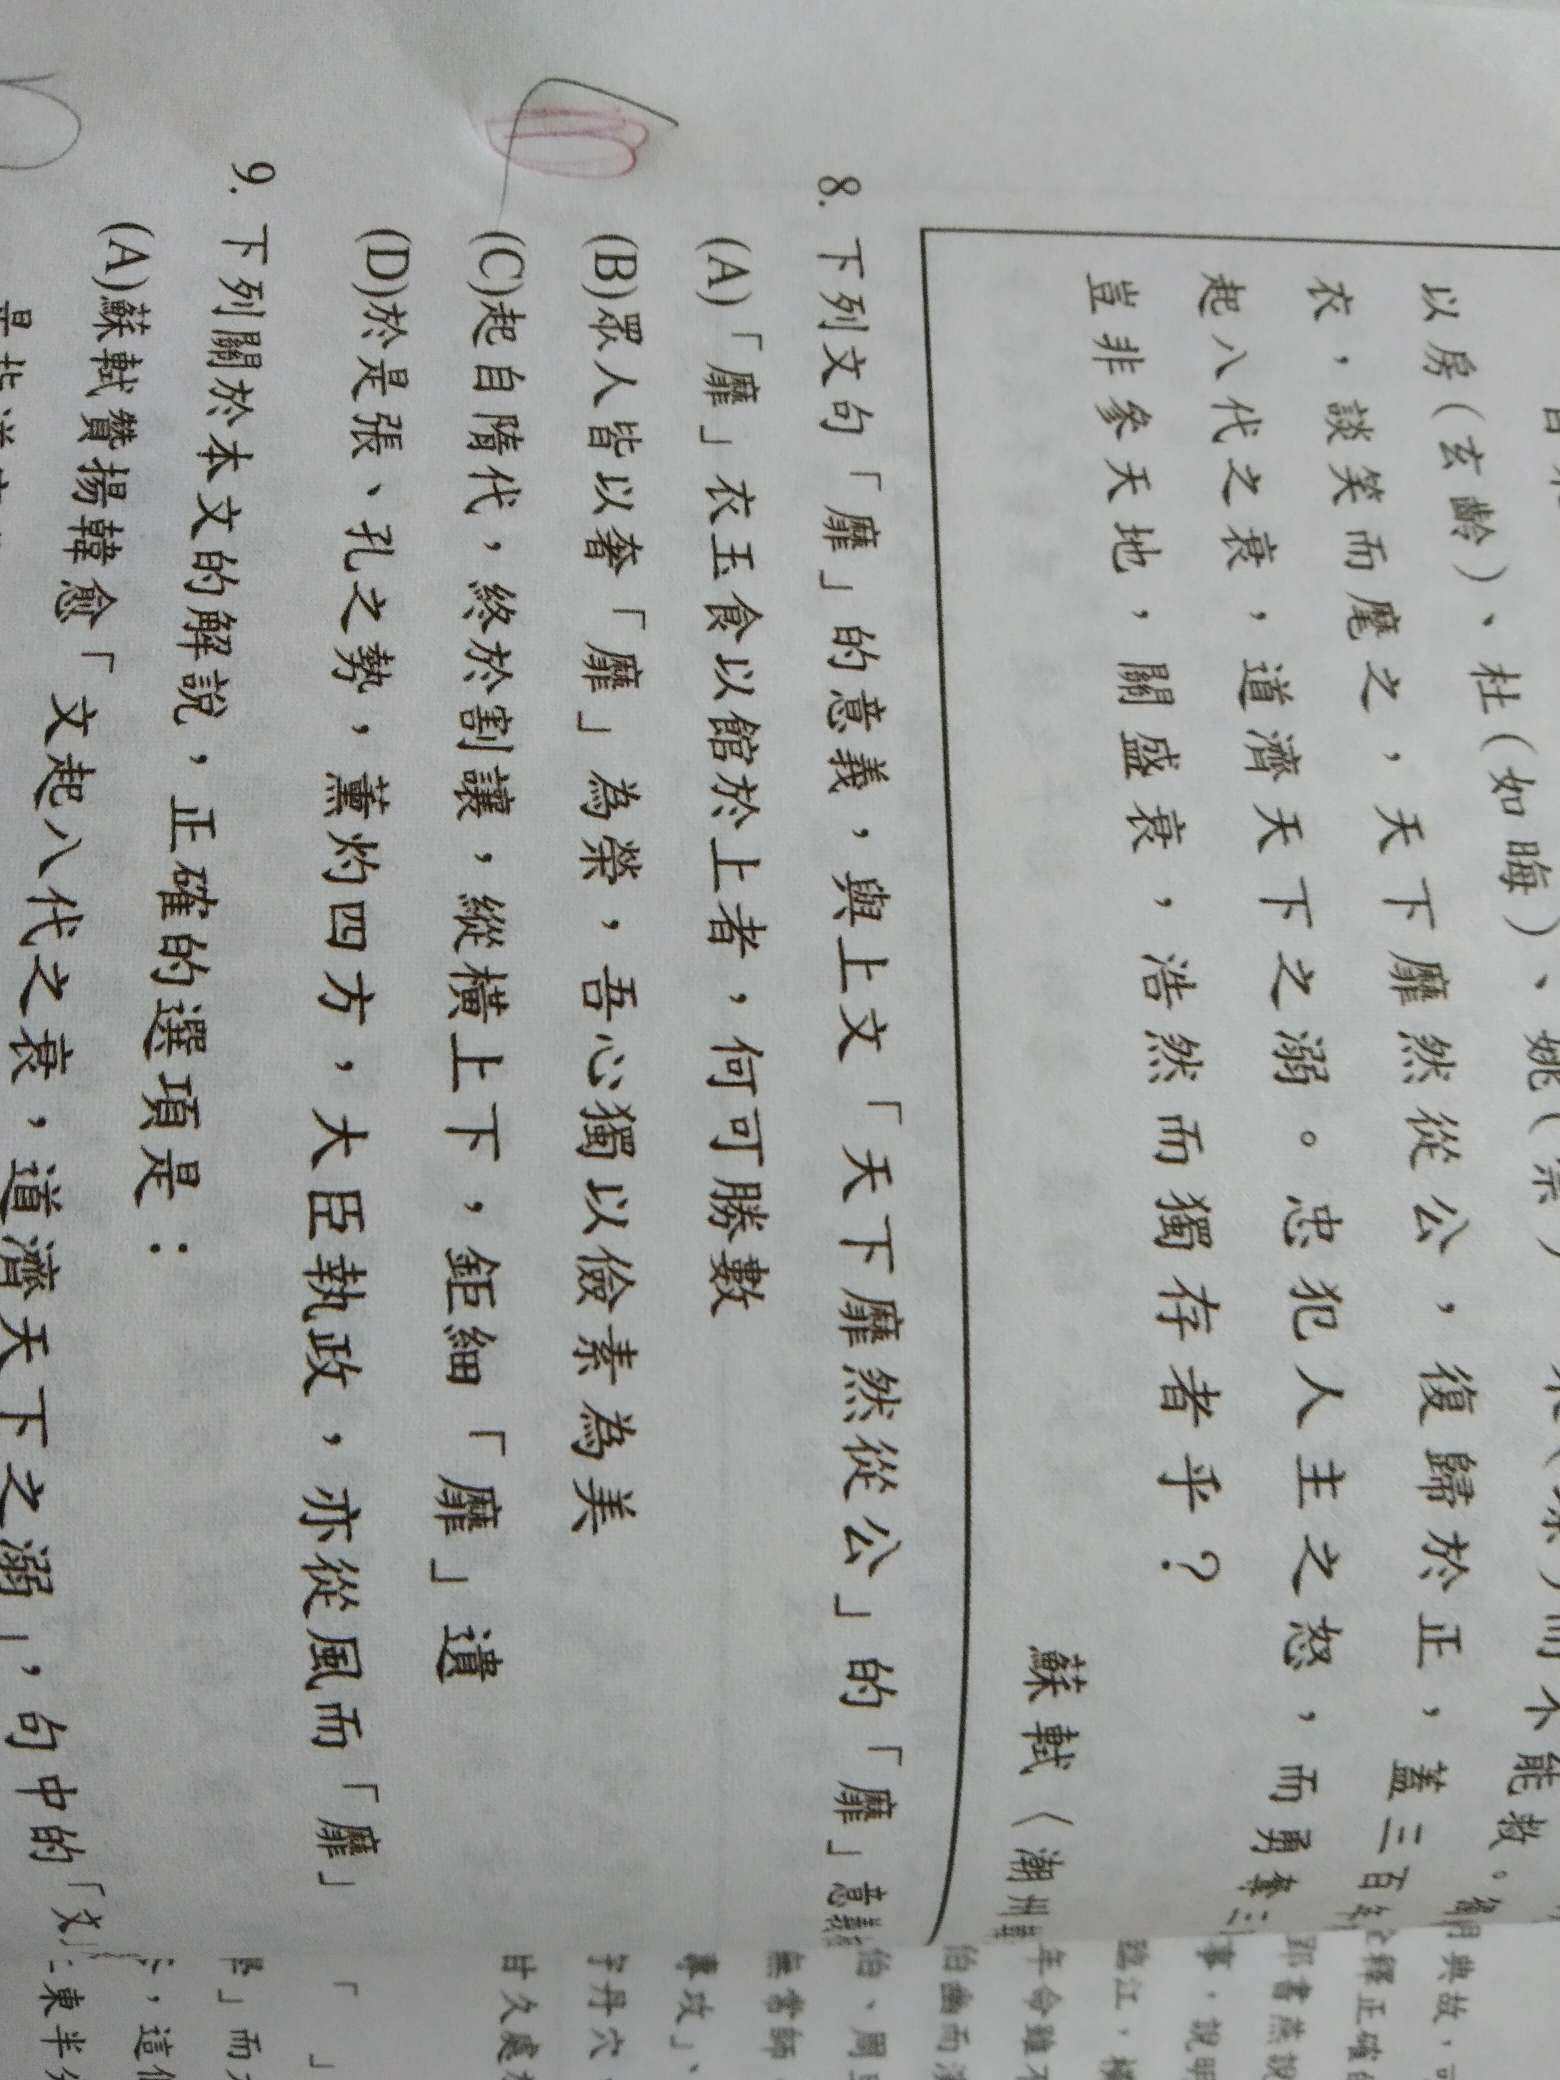 以房(玄齡)、杜(如晦)、姚(崇)
而不能救。
衣,談笑而麾之,天下靡然從公,復歸於正,蓋三百
起八代之衰,道濟天下之溺。忠犯人主之怒,而勇奪三
豈非參天地,關盛衰,浩然而獨存者乎?
蘇軾〈潮州
8. 下列文句「靡」的意義,與上文「天下靡然從公」的「靡」意
(A)「靡」衣玉食以館於上者,何可勝數
(B)眾人皆以奢「靡」為榮,吾心獨以儉素為美
(C)起自隋代,終於割讓,縱橫上下,鉅細「靡」遺
(D)於是張、孔之勢,薰灼四方,大臣執政,亦從風而「靡」
9. 下列關於本文的解說,正確的選項是:
(A)蘇軾贊揚韓愈「文起八代之衰,道濟天下之溺」,句中的「
典故,
釋正確
事,說明
臨江,
年命雖不
伯幽而演
伯、周
無常師
專攻」、
于丹穴
甘久處
「 」
」而
,這
東半